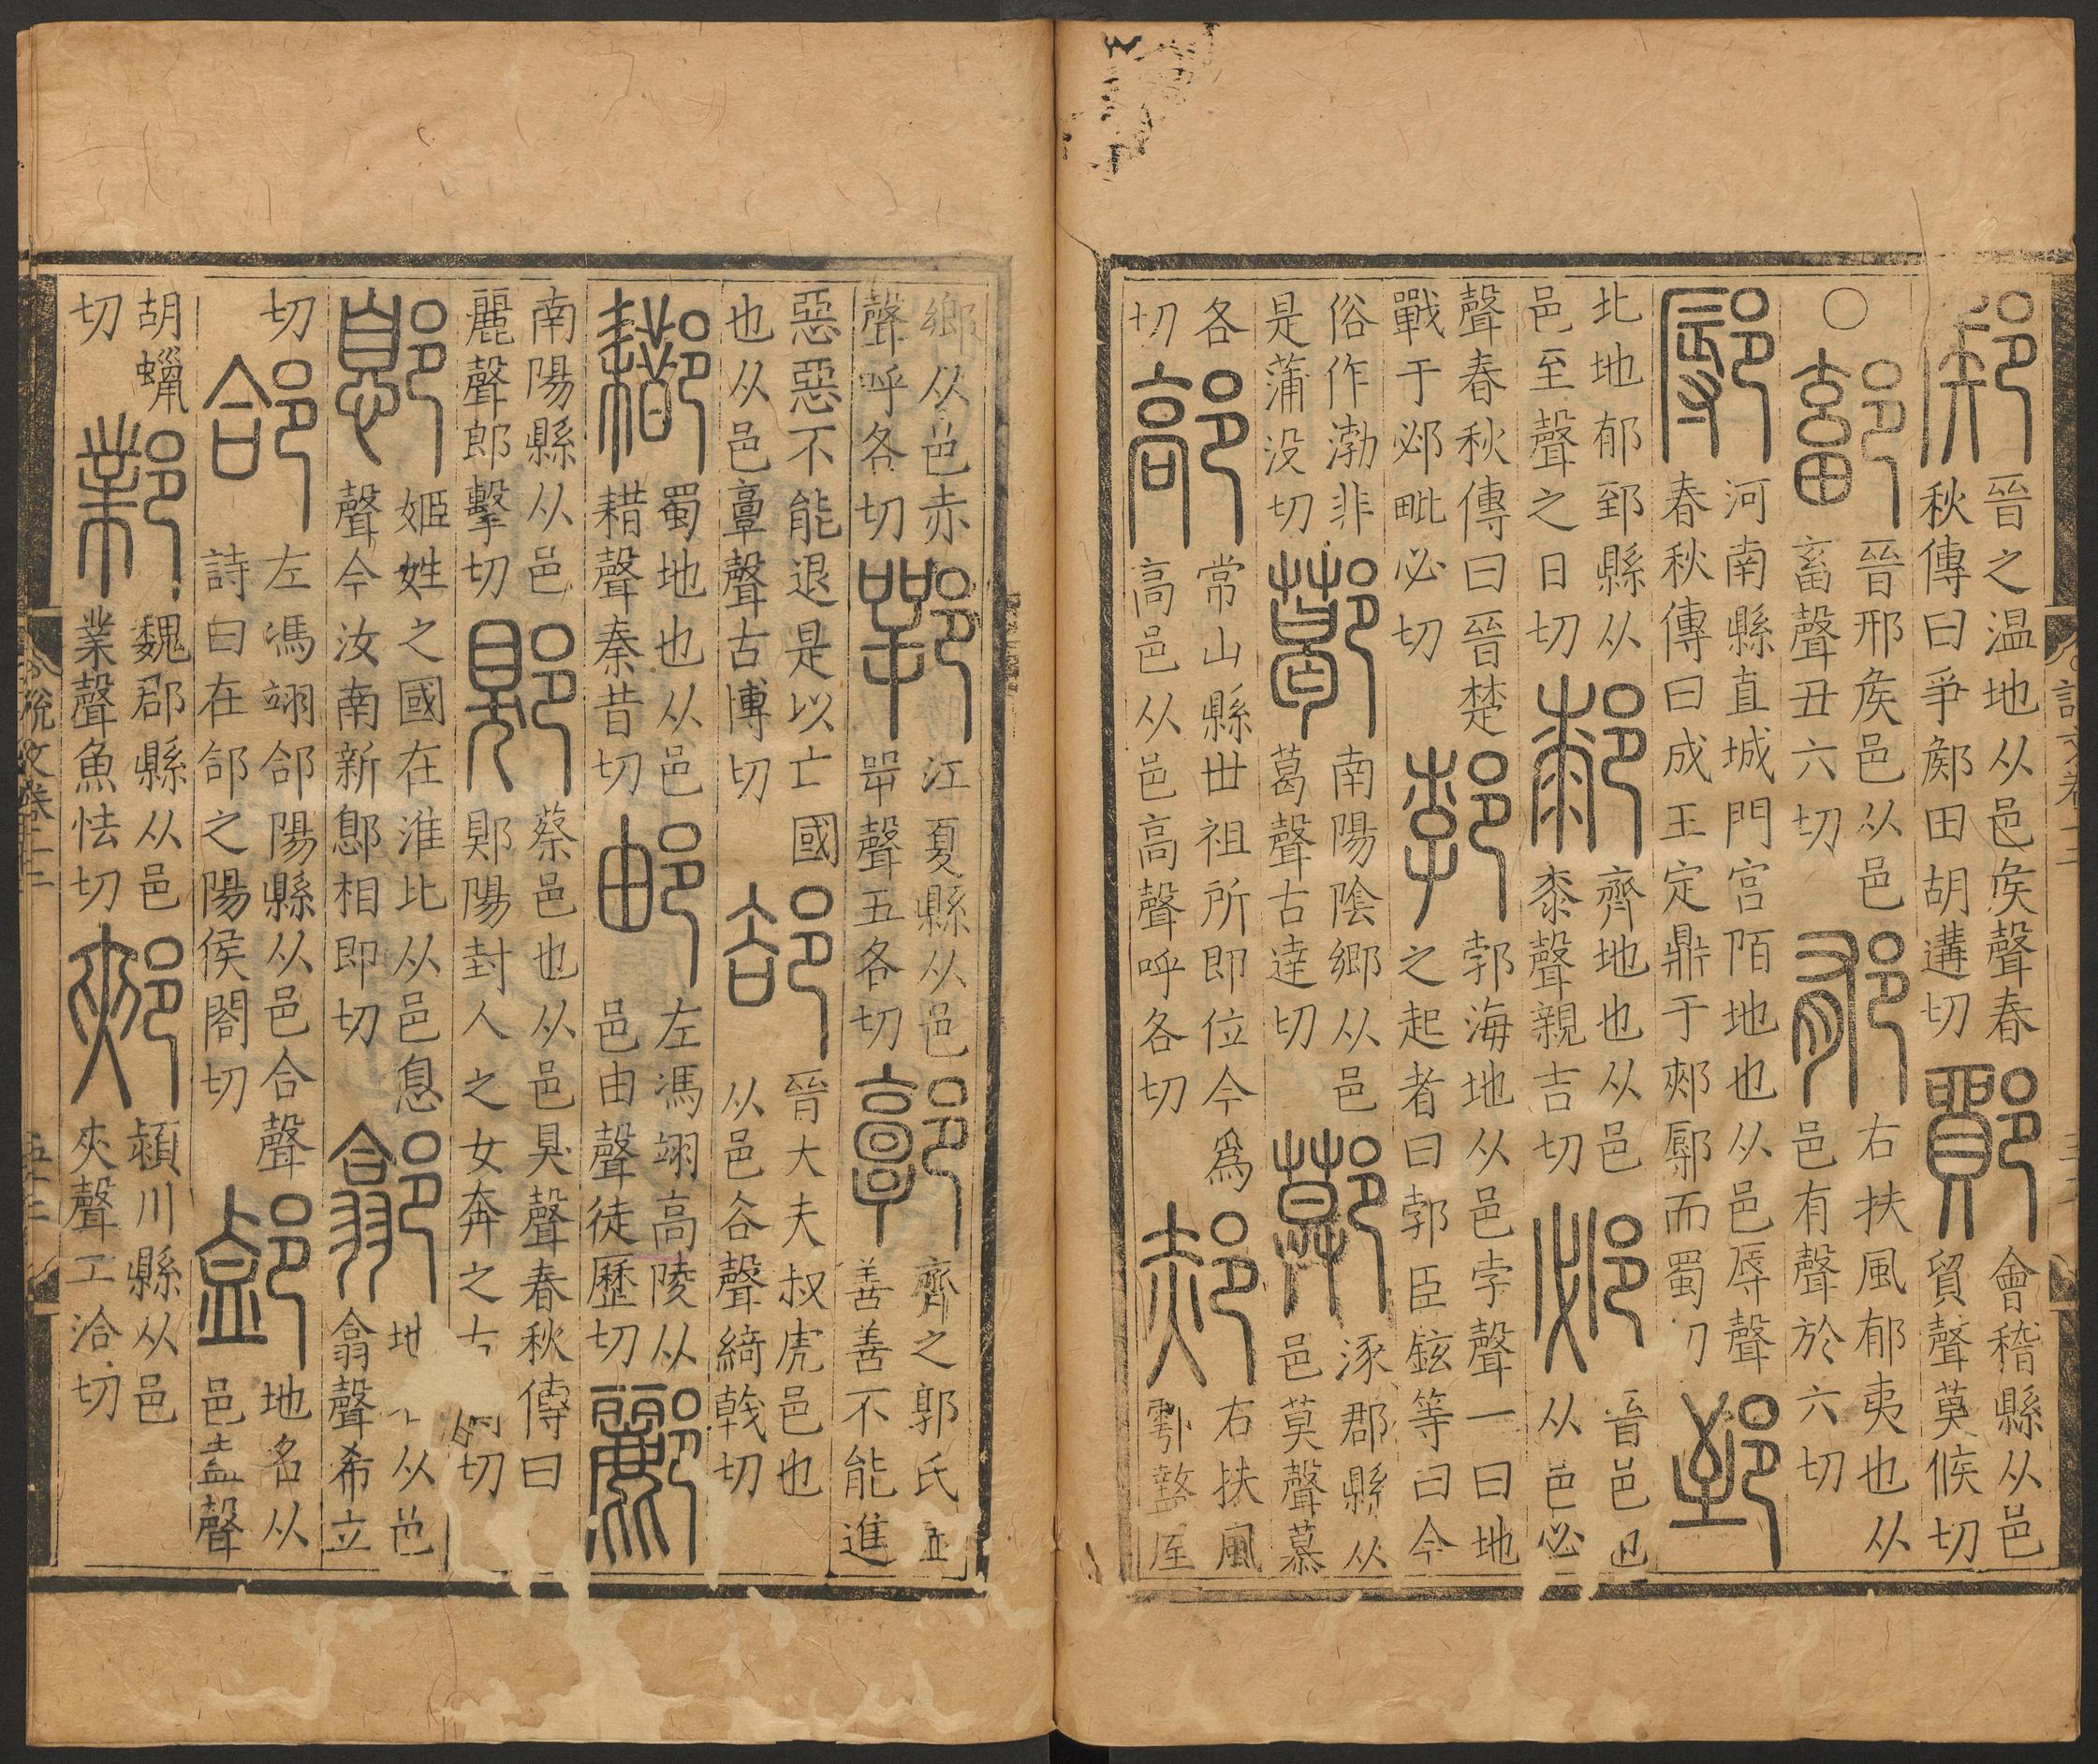 鄇 晉之温地从邑矦聲春秋傳曰爭鄇田胡遘切 鄮 會稽縣从邑貿聲莫候切
○ 鄐 晉邢矦邑从邑畜聲丑六切 郁 右扶風郁夷也从邑有聲於六切
鄏 河南縣直城門宫陌地也从邑辱聲春秋傳曰成王定鼎于郟鄏而蜀切 郅
北地郁郅縣从邑至聲之日切 䣛 齊地也从邑桼聲親吉切 邲 晉邑也从邑必
聲春秋傳曰晉楚戰于邲毗必切 郣 郣海地从邑孛聲一曰地之起者曰郣臣鉉等曰今
俗作渤非是蒲没切 南陽陰鄉从邑葛聲古達切 鄚 涿郡縣从邑莫聲慕
各切 鄗 常山縣丗祖所即位今爲高邑从邑高聲呼各切 郝 右扶風鄠盩厔
鄉从邑赤聲呼各切 鄂 江夏縣从邑咢聲五各切 郭 齊之郭氏善善不能進
惡惡不能退是以亡國也从邑𩫏聲古博切 郤 晉大夫叔虎邑也从邑𧮫聲綺戟切
蜀地也从邑耤聲秦昔切 邮 左馮翊高陵从邑由聲徒歷切 酈
南陽縣从邑麗聲郎擊切 郹 蔡邑也从邑狊聲春秋傳曰郹陽封人之女奔之切
鄎 姬姓之國在淮北从邑息聲今汝南新鄎相即切 地从邑翕聲希立
切 郃 左馮翊郃陽縣从邑合聲詩曰在郃之陽侯閤切 地名从邑盍聲
胡蠟切 鄴 魏郡縣从邑業聲魚怯切 郟 潁川縣从邑夾聲工洽切